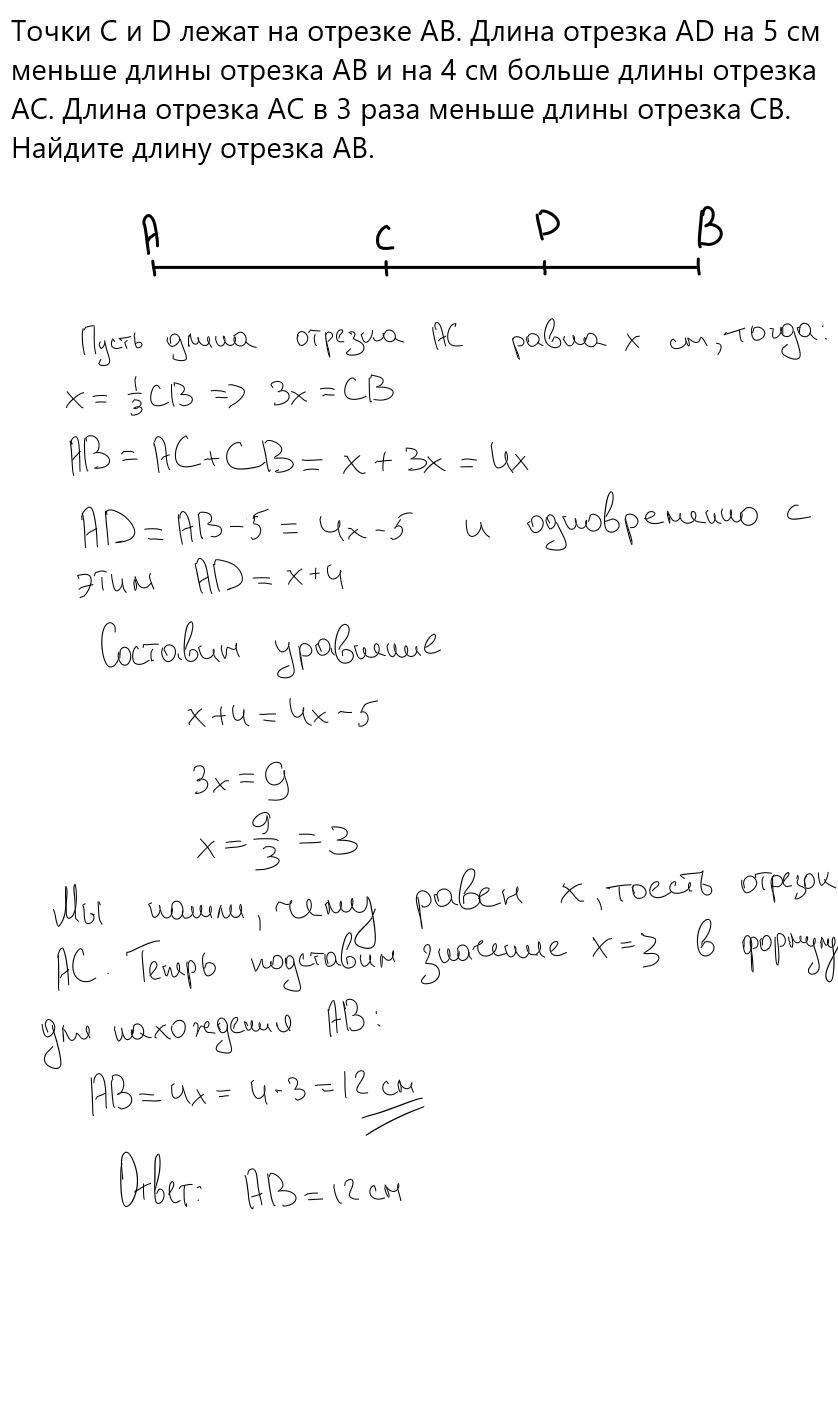 Точки C и D лежат на отрезке AB. Длина отрезка AD на 5 см
меньше длины отрезка AB и на 4 см больше длины отрезка
AC. Длина отрезка AC в 3 раза меньше длины отрезка CB.
Найдите длину отрезка AB.
A C D B
Пусть длина отрезка AC равна x см, тогда:
x = 1/3 CB => 3x = CB
AB = AC + CB = x + 3x = 4x
AD = AB - 5 = 4x - 5 и одновременно с
этим AD = x + 4
Составим уравнение
x + 4 = 4x - 5
3x = 9
x = 9/3 = 3
Мы нашли, чему равен x, тоесть отрезок
AC. Теперь подставим значение x = 3 в формулу
для нахождения AB:
AB = 4x = 4 · 3 = 12 см
Ответ: AB = 12 см